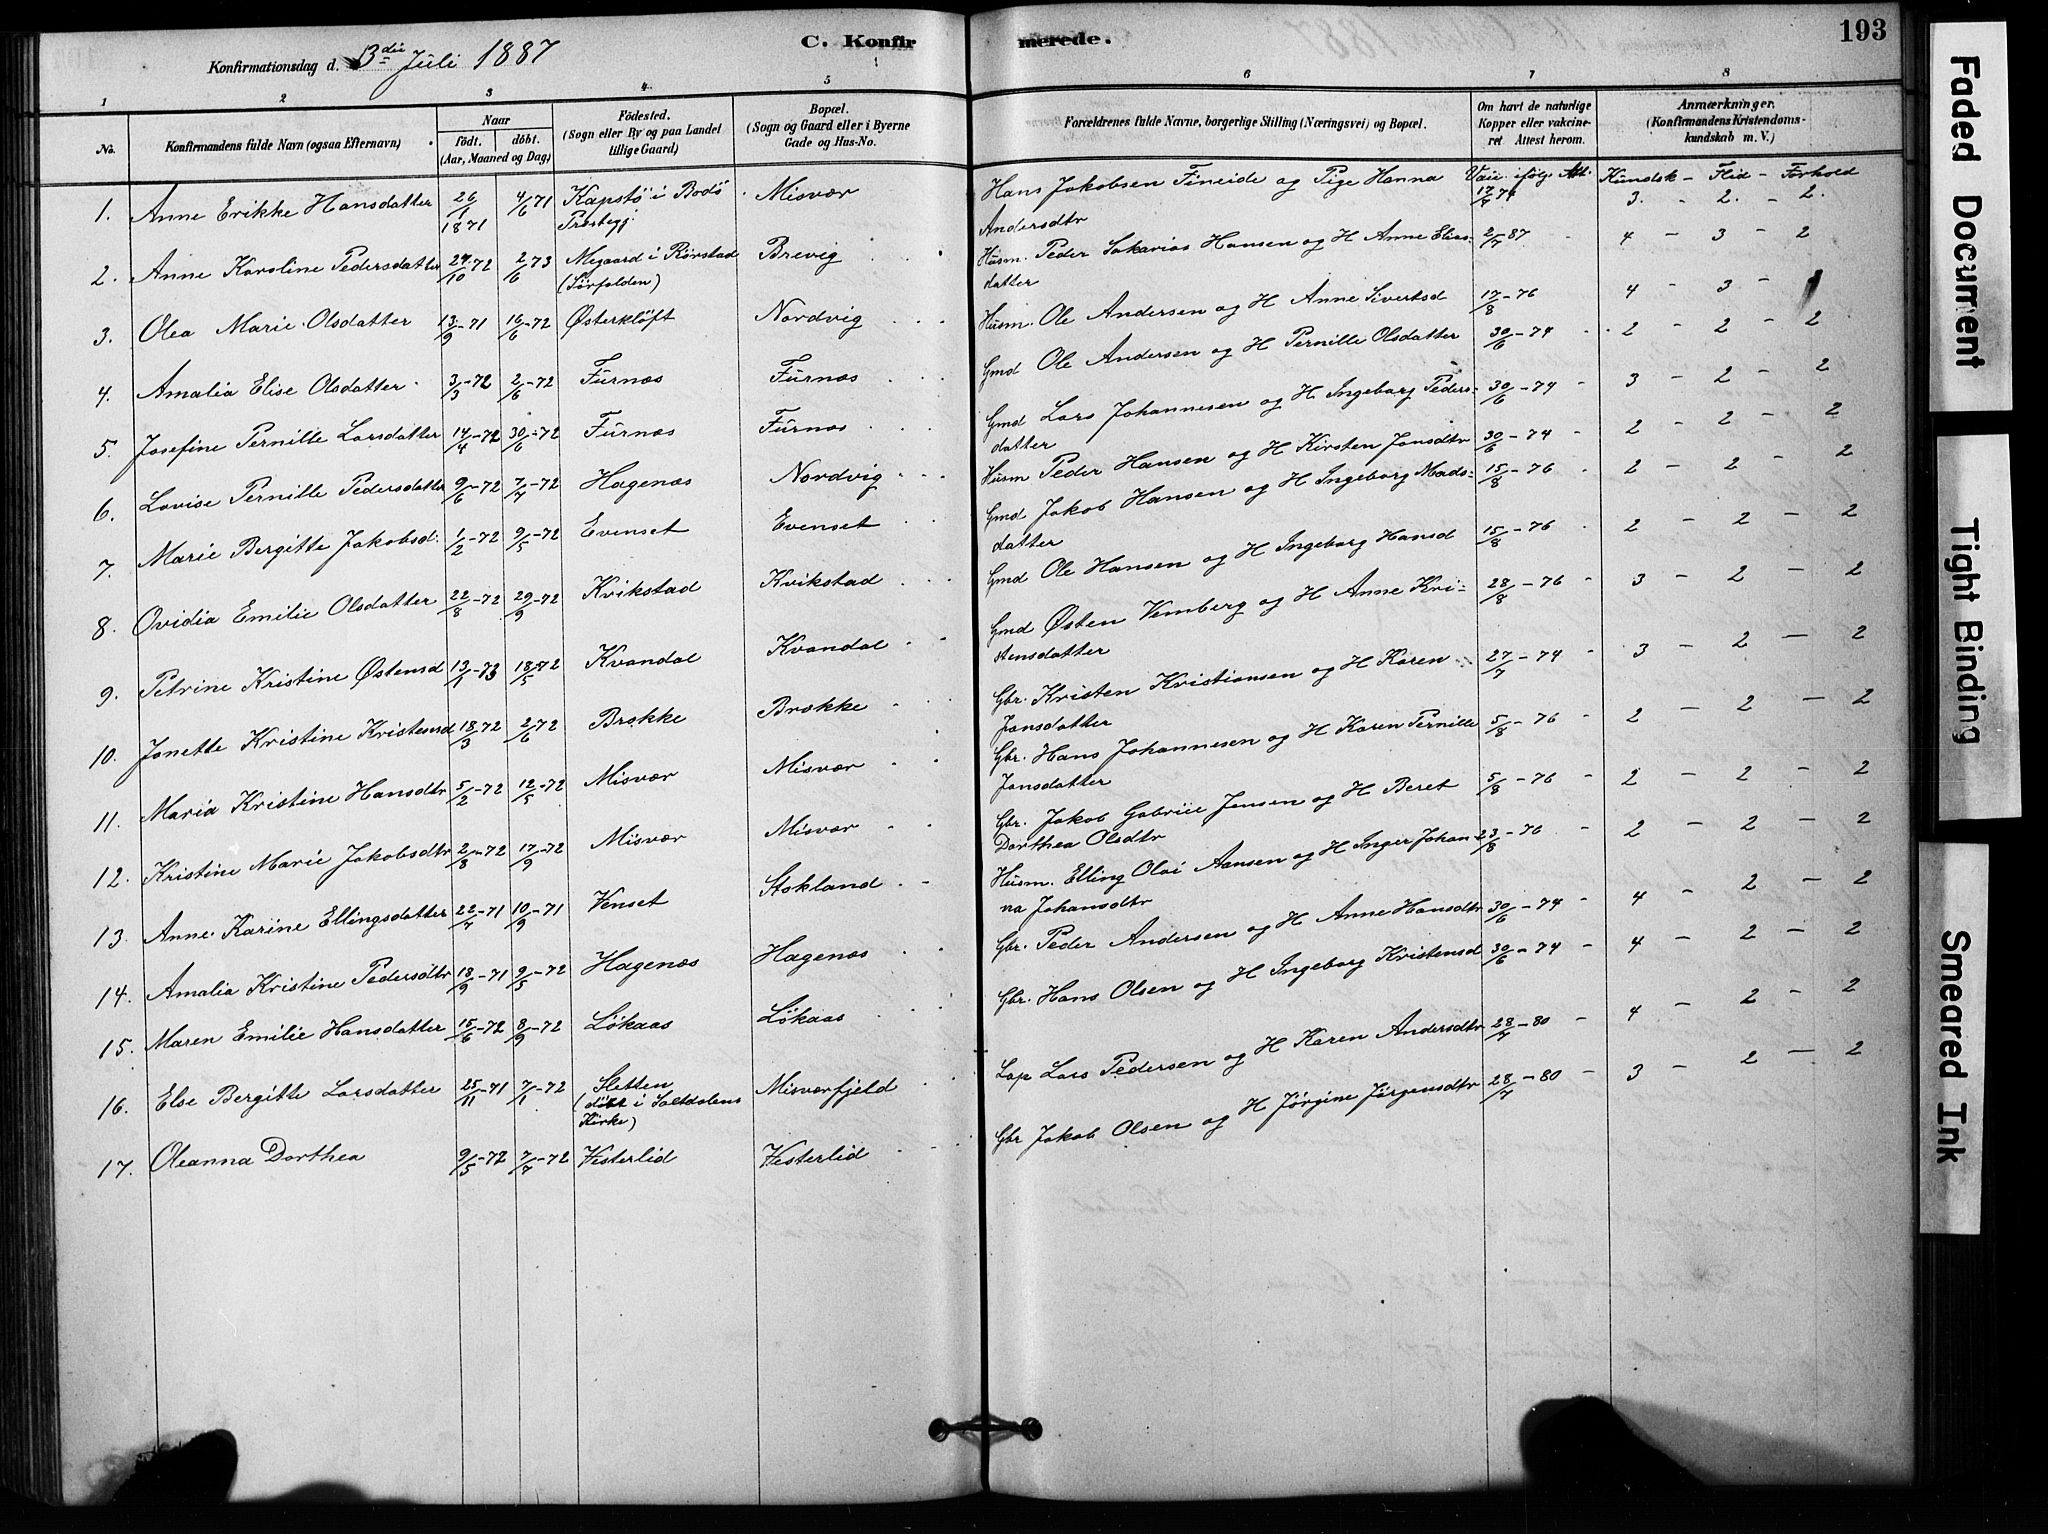 C. Konfirmerede.
193
Konfirmationsdag d. 3die Juli 1887
1 2 3 4 5 6 7 8
No. Konfirmandens fulde Navn (ogsaa Efternavn) Naar födt. döbt. (Aar, Maaned og Dag) Födested. (Sogn eller By og paa Landet tillige Gaard) Bopæl. (Sogn og Gaard eller i Byerne Gade og Hus-No. Forældrenes fulde Navne, borgerlige Stilling (Næringsvei) og Bopæl. Om havt de naturlige Kopper eller vakcineret Attest herom. Anmærkninger. (Konfirmandens Kristendomskundskab m. V.)
Kundsk - Flid - Forhold
1. Anne Erikke Hansdatter 26/1 1871 4/6 71 Kapstø i Bodø Prestegj. Misvær Hans Jakobsen Fineide og Pige Hanna Andersdtr Vacc. ifølg. Att. 17/7 74 3. - 2. - 2.
2. Anne Karoline Pedersdatter 24/10 72 2/6 73 Megaard i Rørstad (Sørfolden) Brevig Husm. Peder Sakarias Hansen og H Anne Eliasdatter 2/7 87 4 - 3 - 2
3. Olea Marie Olsdatter 13/9-71 16/6-72 Østerkløft Nordvig Husm. Ole Andersen og H Anne Sivertsd 17/8-76 4 - 3 - 1
4. Amalia Elise Olsdatter 3/3-72 2/6-72 Furnæs Furnæs Gmd Ole Andersen og H Pernille Olsdatter 30/6-74 2 - 2 - 2
5. Josefine Pernille Larsdatter 14/4-72 30/6-72 Furnæs Furnæs Gmd Lars Johannesen og H. Ingeborg Pedersdatter 30/6-74 3 - 2 - 2
6. Lovise Pernille Pedersdatter 9/6-72 7/7-72 Hagenæs Nordvig Husm Peder Hansen og H Kirsten Jonsdtr 30/6-74 2 - 2 - 2
7. Marie Bergitte Jakobsd. 1/2-72 9/5-72 Evenset Evenset Gmd Jakob Hansen og H Ingeborg Madsdatter 15/8-76 2 - 2 - 2
8. Ovidia Emilie Olsdatter 22/8-72 29/9-72 Kvikstad Kvikstad Gmd Ole Hansen og H Ingeborg Hansd 15/8-76 2 - 2 - 2
9. Petrine Kristine Østensd 13/1-73 18/5-72 Kvandal Kvandal Gmd Østen Vemberg og H Anne Kristensdatter 28/8-76 3 - 2 - 2
10. Jonette Kristine Kristensd 18/3-72 2/6-72 Brække Brække Gbr. Kristen Kristiansen og H Karen Jonsdatter 27/7-74 3 - 2 - 2
11. Maria Kristine Hansdtr 5/2-72 12/5-72 Misvær Misvær Gbr. Hans Johannesen og H Karen Pernille Jonsdatter 5/8-76 2 - 2 - 2
12. Kristine Marie Jakobsdtr 2/8-72 17/9-72 Misvær Misvær Gbr. Jakob Gabriel Jensen og H Beret Dorthea Olsdtr 5/8-76 2 - 2 - 2
13. Anne Karine Ellingsdatter 22/7-71 10/9-71 Venset Stokland Husm. Elling Olai Aansen og H Inger Johanna Johansdtr 23/8-76 2 - 2 - 2
14. Amalia Kristine Pedersdtr 18/9-71 9/5-72 Hagenæs Hagenæs Gbr. Peder Andersen og H Anne Hansdtr 30/6-74 4 - 2 - 2
15. Maren Emilie Hansdatter 15/6-72 8/9-72 Løkaas Løkaas Gbr. Hans Olsen og H Ingeborg Kristensd 30/6-74 4 - 2 - 2
16. Else Bergitte Larsdatter 25/11-71 7/1-72 Sletten (døbt i Saltdalens Kirke) Misværfjeld Lap Lars Pedersen og H Karen Andersdtr 28/7-80 4 - 2 - 2
17. Oleanna Dorthea 9/5-72 7/7-72 Vesterlid Vesterlid Gbr Jakob Olsen og H Jørgine Jørgensdtr 28/7-80 3 - 2 - 2
Faded Document
Tight Binding
Smeared Ink